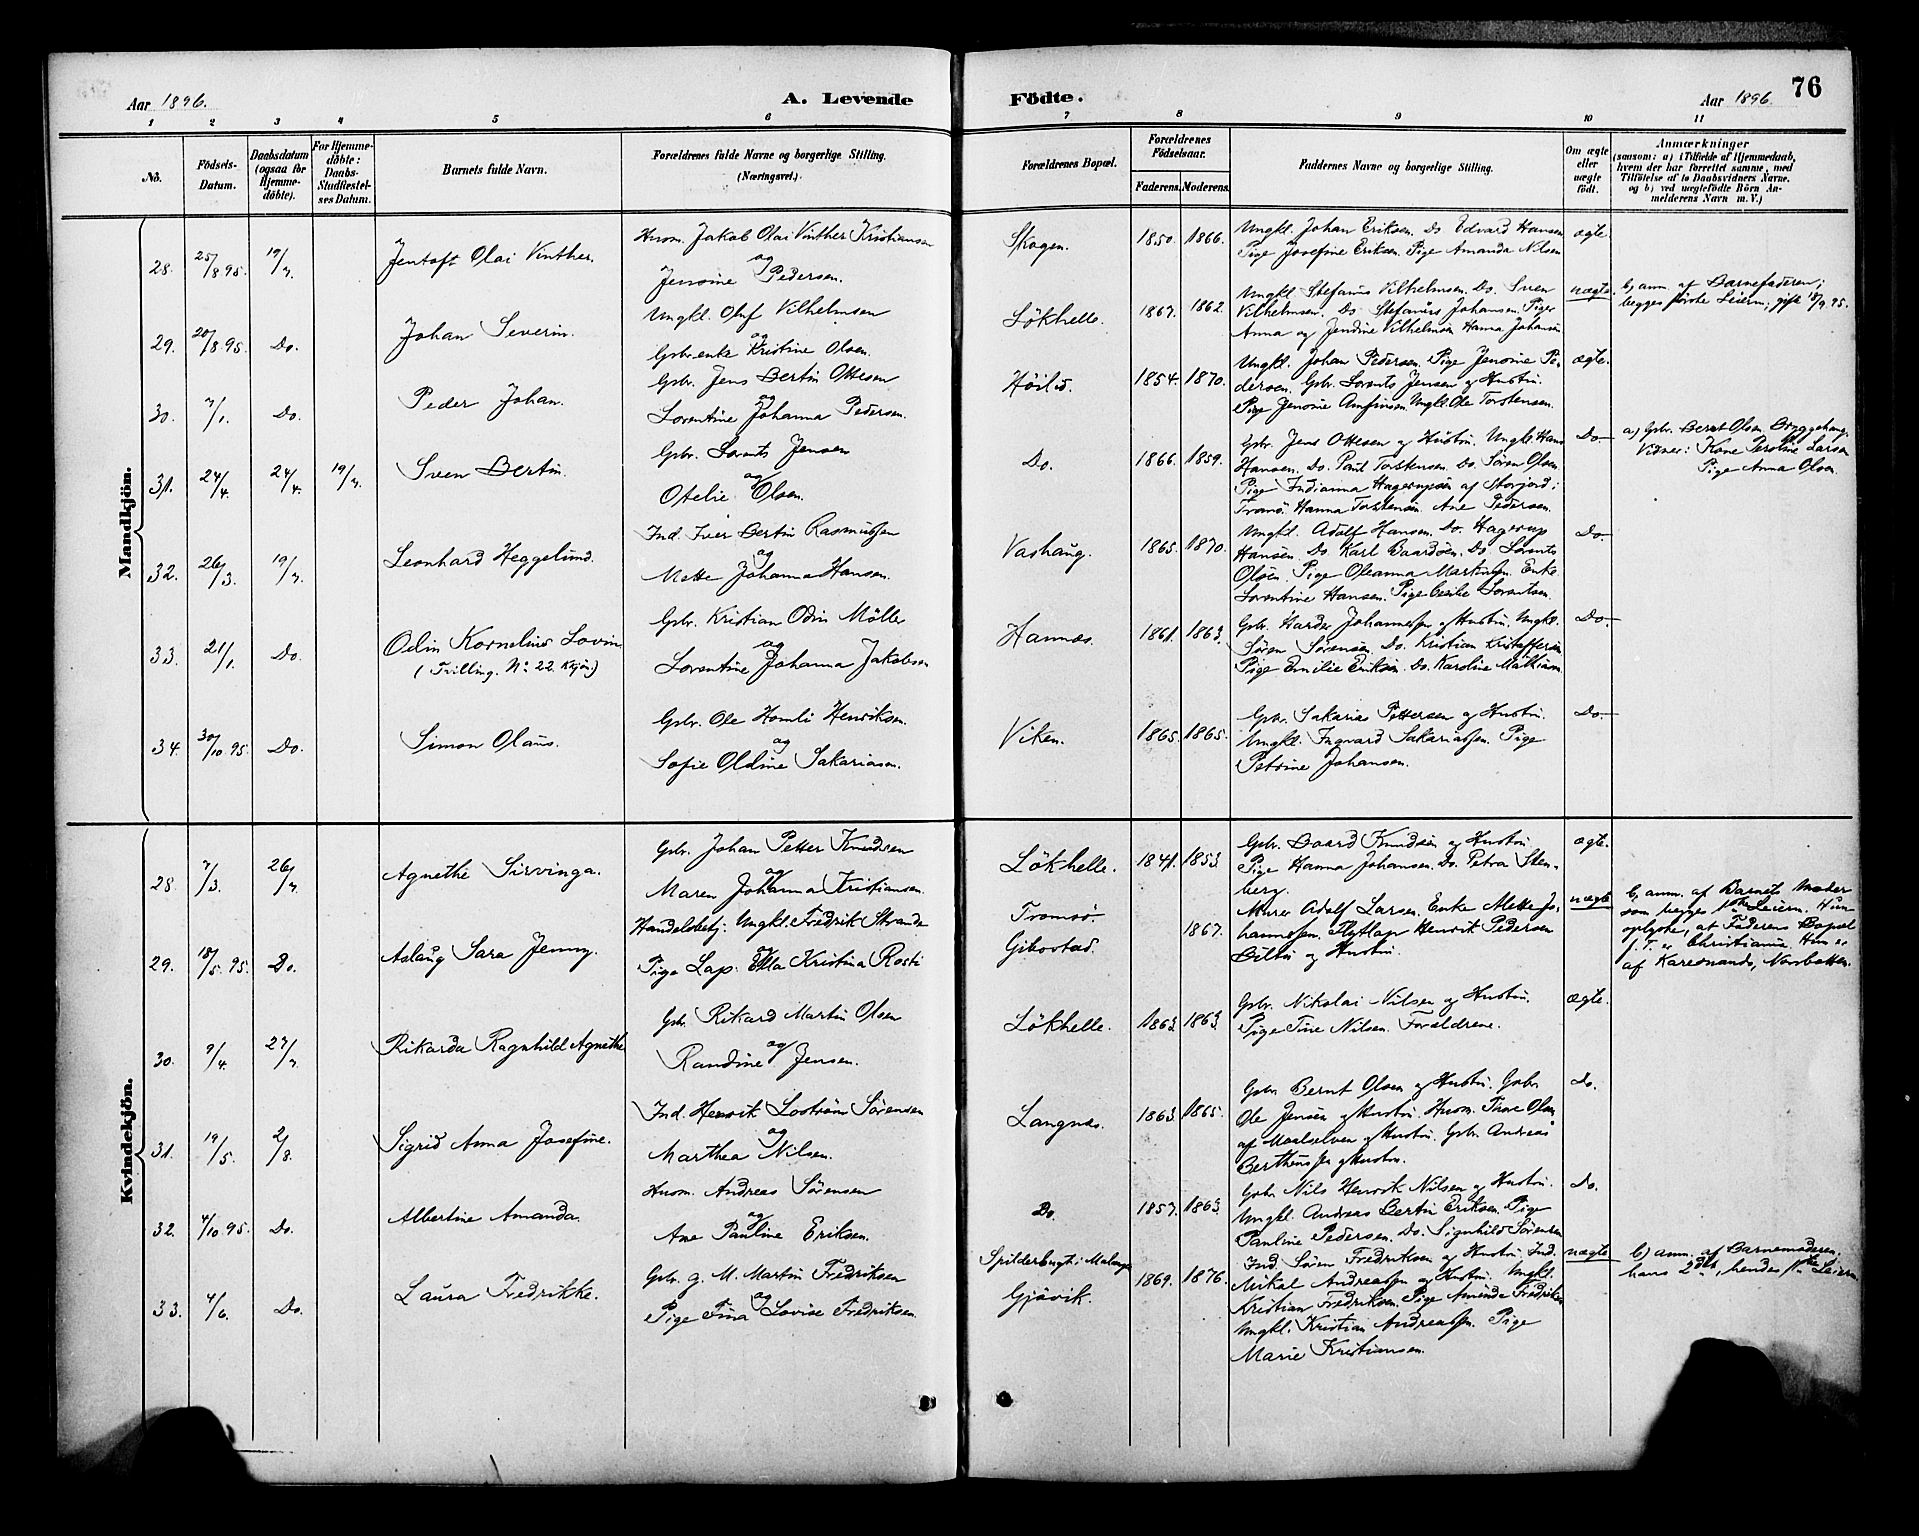 76
Aar 1896.
A. Levende
Födte.
Aar 1896.
1 2 3 4 5 6 7 8 9 10 11
No.
Födsels-
Datum.
Daabsdatum
(ogsaa for
Hjemme-
döbte).
For Hjemme-
döbte:
Daabs-
Stadfæstel-
ses Datum.
Barnets fulde Navn.
Forældrenes fulde Navne og borgerlige Stilling.
(Næringsvei.)
Forældrenes Bopæl.
Forældrenes
Födselsaar.
Faderens. Moderens.
Faddernes Navne og borgerlige Stilling.
Om ægte
eller
uægte
födt.
Anmærkninger
(saasom: a) i Tilfælde af Hjemmedaab,
hvem der har forrettet samme, med
Tilföielse af to Daabsvidners Navne.
og b) ved uægtefödte Börn An-
melderens Navn m. V.)
Mandkjön.
28. 25/8 95. 19/7. Jentoft Olai Vinther.
Husm. Jakob Olai Vinther Kristiansen
og
Jensine Pedersen.
Skogen. 1850. 1866.
Ungkl. Johan Eriksen. Do Edvard Hansen
Pige Josefine Eriksen. Pige Amanda Nilsen
ægte.
29. 20/8 95. Do. Johan Severin.
Ungkl. Oluf Vilhelmsen
og
Gbr.enke Kristine Olsen.
Lökhelle. 1867. 1862.
Ungkl. Stefanus Vilhelmsen. Do. Sven
Vilhelmsen. Do. Stefanus Johansen. Piger
Anna og Jendine Vilhelmsen Hanna Johansen
uægte.
b, anm. af Barnefaderen;
begges förste Leierm; gift 18/9 95.
30. 7/1. Do. Peder Johan.
Gbr. Jens Bertin Ottesen
og
Lorentine Johanna Pedersen.
Höilid. 1854. 1870.
Ungkl. Johan Pedersen. Pige Jensine Pe-
dersen. Gbr. Lorents Jensen og Hustru.
Pige Jensine Amfinsen. Ungkl. Ole Torstensen.
ægte.
31. 24/4. 24/4. 19/7. Sven Bertin.
Gbr. Lorents Jensen
og
Otelie Olsen.
Do. 1866. 1859.
Gbr. Jens Ottesen og Hustru. Ungkl. Hans
Hansen. Do. Paul Torstensen. Do. Sören Olsen
Pige Indianna Hagerupsen af Storjord i
Tranö. Hanna Torstensen. Ane Pedersen.
Do
a) Gbr. Bernt Olsen Bryggehaug.
Vidner: Kone Peroline Larsen
Pige Anna Olsen.
32. 26/3. 19/7. Leonhard Heggelund.
Ind. Iver Bertin Rasmussen
og
Mette Johanna Hansen.
Vashaug. 1865. 1870.
Ungkl. Adolf Hansen. Do. Hagerup
Hansen. Do Karl Baardsen. Do Lorents
Olsen. Pige Oleanna Martinsen. Enke
Lorentine Hansen. Pige Cecilie Lorentsen.
Do
33. 21/1. Do. Odin Kornelius Lovin
(Tvilling. No 22 Kkjön)
Gbr. Kristian Odin Möller
og
Lorentine Johanna Jakobsen
Hannæs. 1861. 1863.
Gbr. Harder Johannessen og Hustru. Ungkl.
Sören Sörensen. Do. Kristian Kristoffersen
Pige Emilie Eriksen. Do. Karoline Mathisen
Do
34. 30/10 95. Do. Simon Olaus.
Gbr. Ole Homli Henriksen.
og
Sofie Oldine Sakariasen.
Viken. 1865. 1865.
Gbr. Sakarias Pettersen og Hustru.
Ungkl. Ingvard Sakariassen. Pige
Petrine Johansen.
Do.
Kvindekjön.
28. 7/3. 26/7. Agnethe Sirvinga.
Gbr. Johan Petter Knudsen
og
Maren Johanna Kristiansen.
Lökhelle. 1841. 1853.
Gbr. Baard Knudsen og Hustru
Pige Hanna Johansen. Do. Petra Sten-
berg.
ægte.
29. 18/5 95. Do. Aslaug Sara Jenny.
Handelsbetj. Ungkl. Fredrik Strande
Pige Lap. Ella Kristina Rosti
Tromsö.
Gibostad. 1867.
Murer Adolf Larsen. Enke Mette Jo-
hannessen. Flytlap Henrik Pedersen
Bilto og Hustru.
uægte
b, anm. af Barnets Moder
som begges 1ste Leierm. Hun
oplyste, at Faderens Bopæl
f. T. er Christiania. Hun er
af Karesuando, Norrbotten.
30. 9/4. 27/7. Rikarda Ragnhild Agnethe
Gbr. Rikard Martin Olsen
og
Randine Jensen.
Lökhelle. 1863. 1863.
Gbr. Nikolai Nilsen og Hustru.
Pige Tine Nilsen. Forældrene.
ægte.
31. 19/5. 2/8. Sigrid Anna Josefine.
Ind. Henrik Loström Sörensen
og
Marthea Nilsen.
Langnes. 1863. 1865.
Gbr. Bernt Olsen og Hustru. Gbr.
Ole Jensen og Hustru. Husm. Tore Olsen
af Maalselven og Hustru. Gbr. Andreas
Bertheussen og Hustru.
Do.
32. 4/10 95. Do. Albertine Amanda.
Husm. Andreas Sörensen
og
Ane Pauline Eriksen.
Do. 1857. 1863.
Gbr. Nils Henrik Nilsen og Hustru.
Ungkl. Andreas Bertin Eriksen. Pige
Pauline Pedersen. Do. Signhild Sörensen
Do.
33. 4/6. Do. Laura Fredrikke.
Gbr. g. M. Martin Fredriksen
og
Pige Tina Lovise Fredriksen.
Spilderbugt i Malangen
Gjövik. 1869. 1876.
Ind. Sören Fredriksen og Hustru. Ind.
Mikal Andreassen og Hustru. Ungkl.
Kristian Fredriksen. Pige Aminda Fredriksen
Ungkl. Kristian Andreassen. Pige
Marie Kristiansen.
uægte
b) anm. af Barnemoderen.
hans 2det, hendes 1ste Leierm